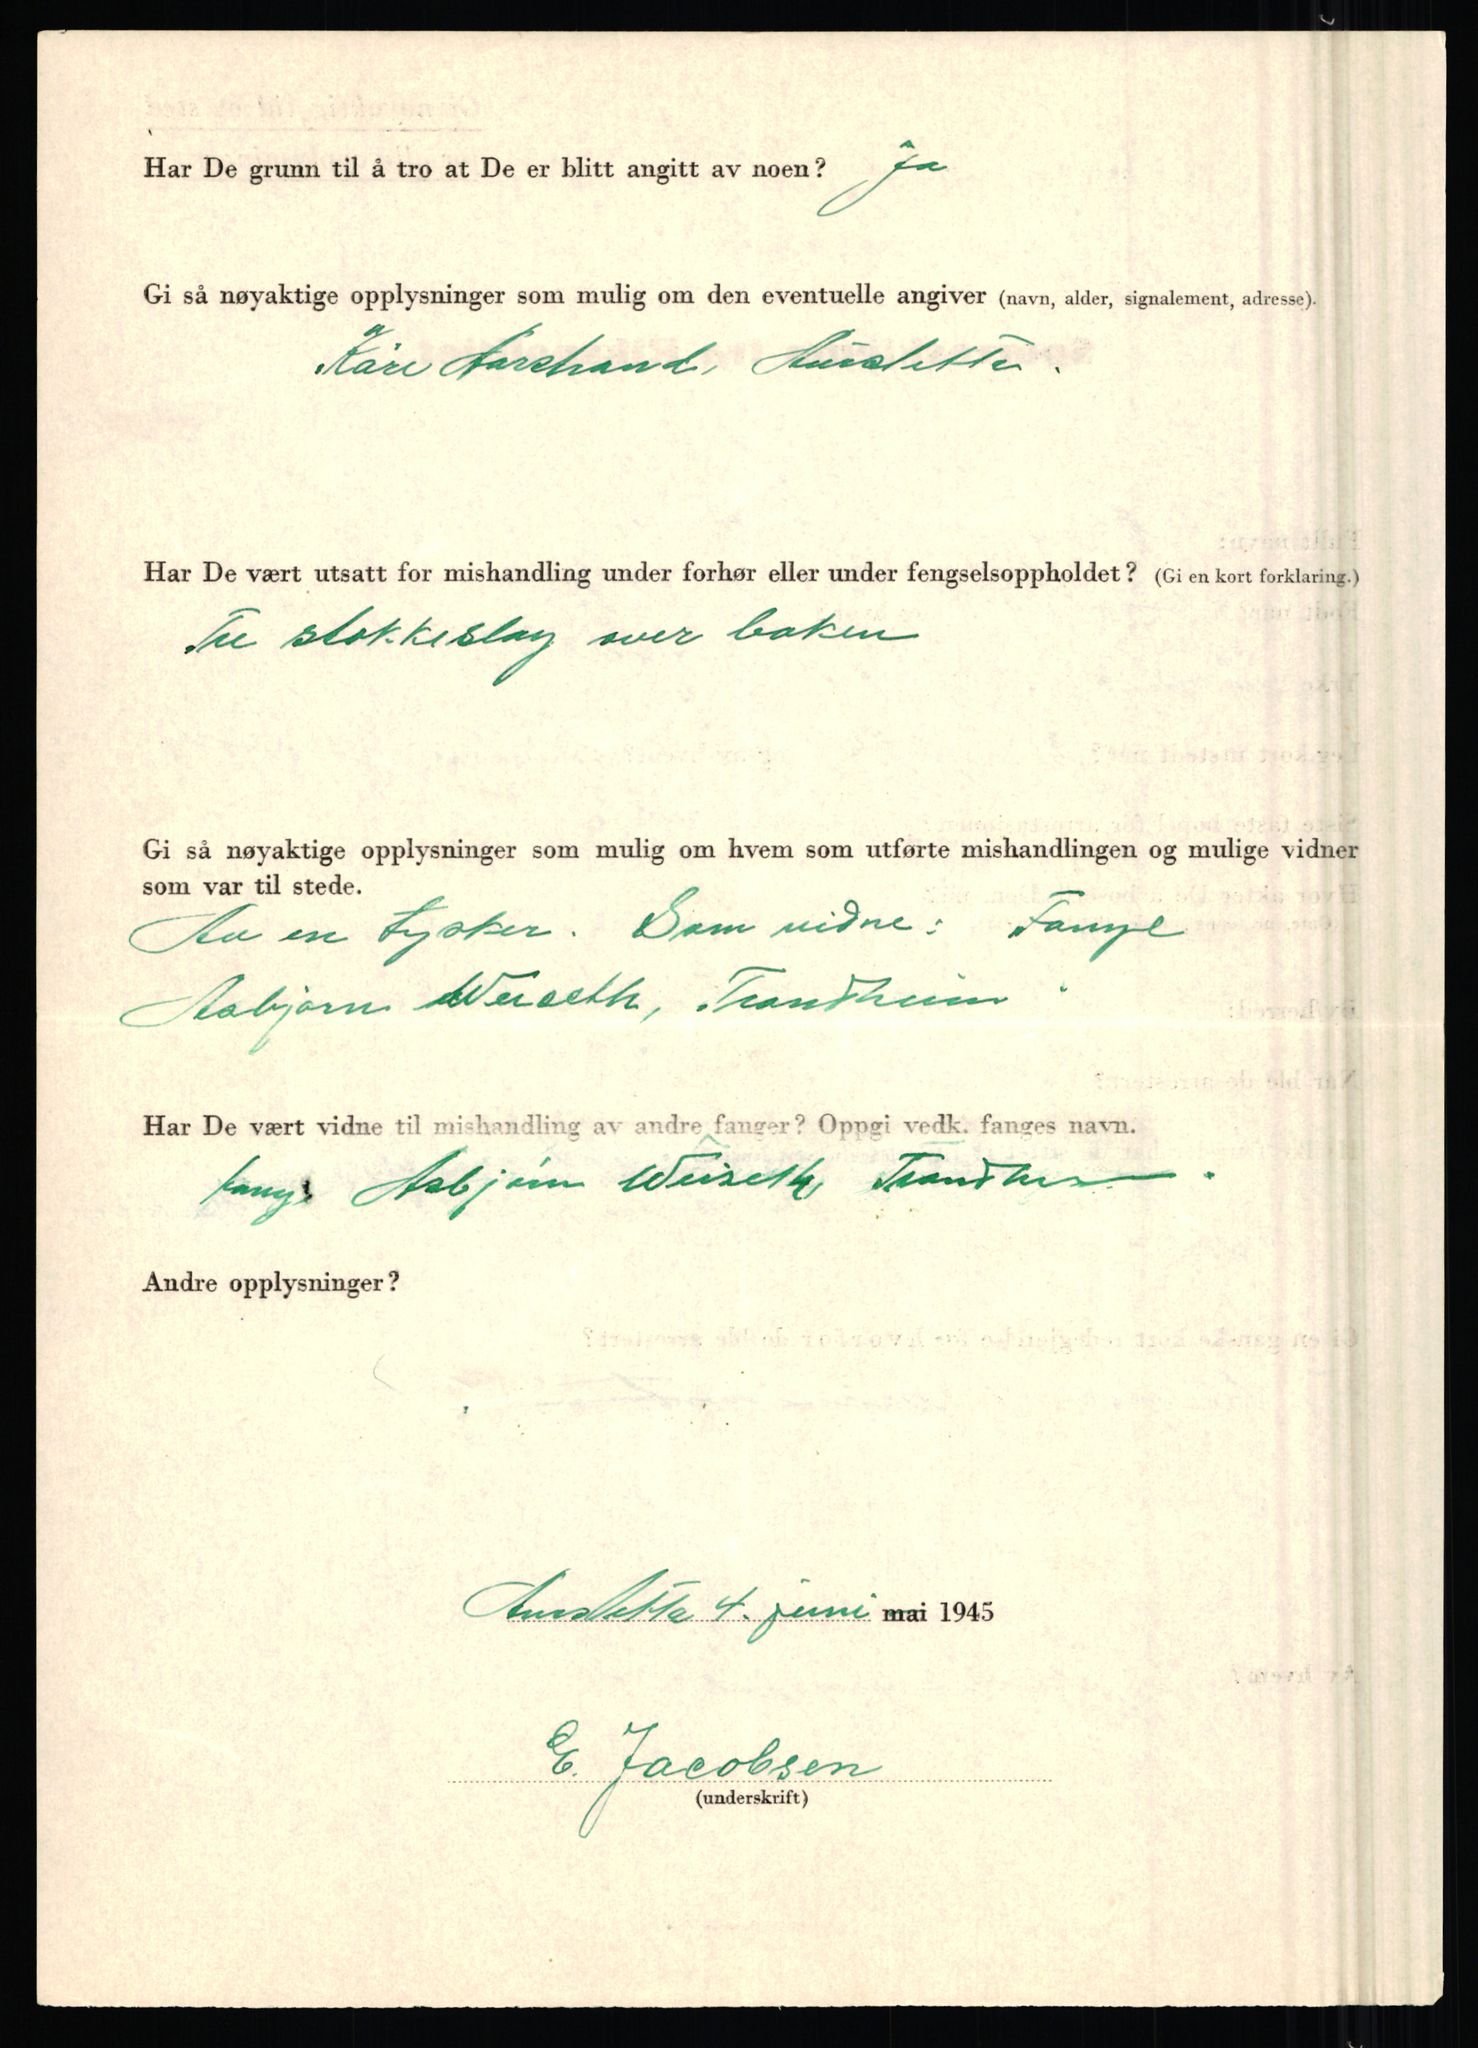 Har De grunn til å tro at De er blitt angitt av noen? Ja
Gi så nøyaktige opplysninger som mulig om den eventuelle angiver (navn, alder, signalement, adresse).
Kåre Aarstrand, Aursletta.
Har De vært utsatt for mishandling under forhør eller under fengselsoppholdet? (Gi en kort forklaring.)
Tre stokkeslag over baken
Gi så nøyaktige opplysninger som mulig om hvem som utførte mishandlingen og mulige vidner
som var til stede.
Av en tysker. Som vidne: Fange
Asbjørn Weiseth, Trondheim.
Har De vært vidne til mishandling av andre fanger? Oppgi vedk. fanges navn.
fange Asbjørn Weiseth, Trondheim.
Andre opplysninger?
4. juni mai 1945
E. Jacobsen
(underskrift)